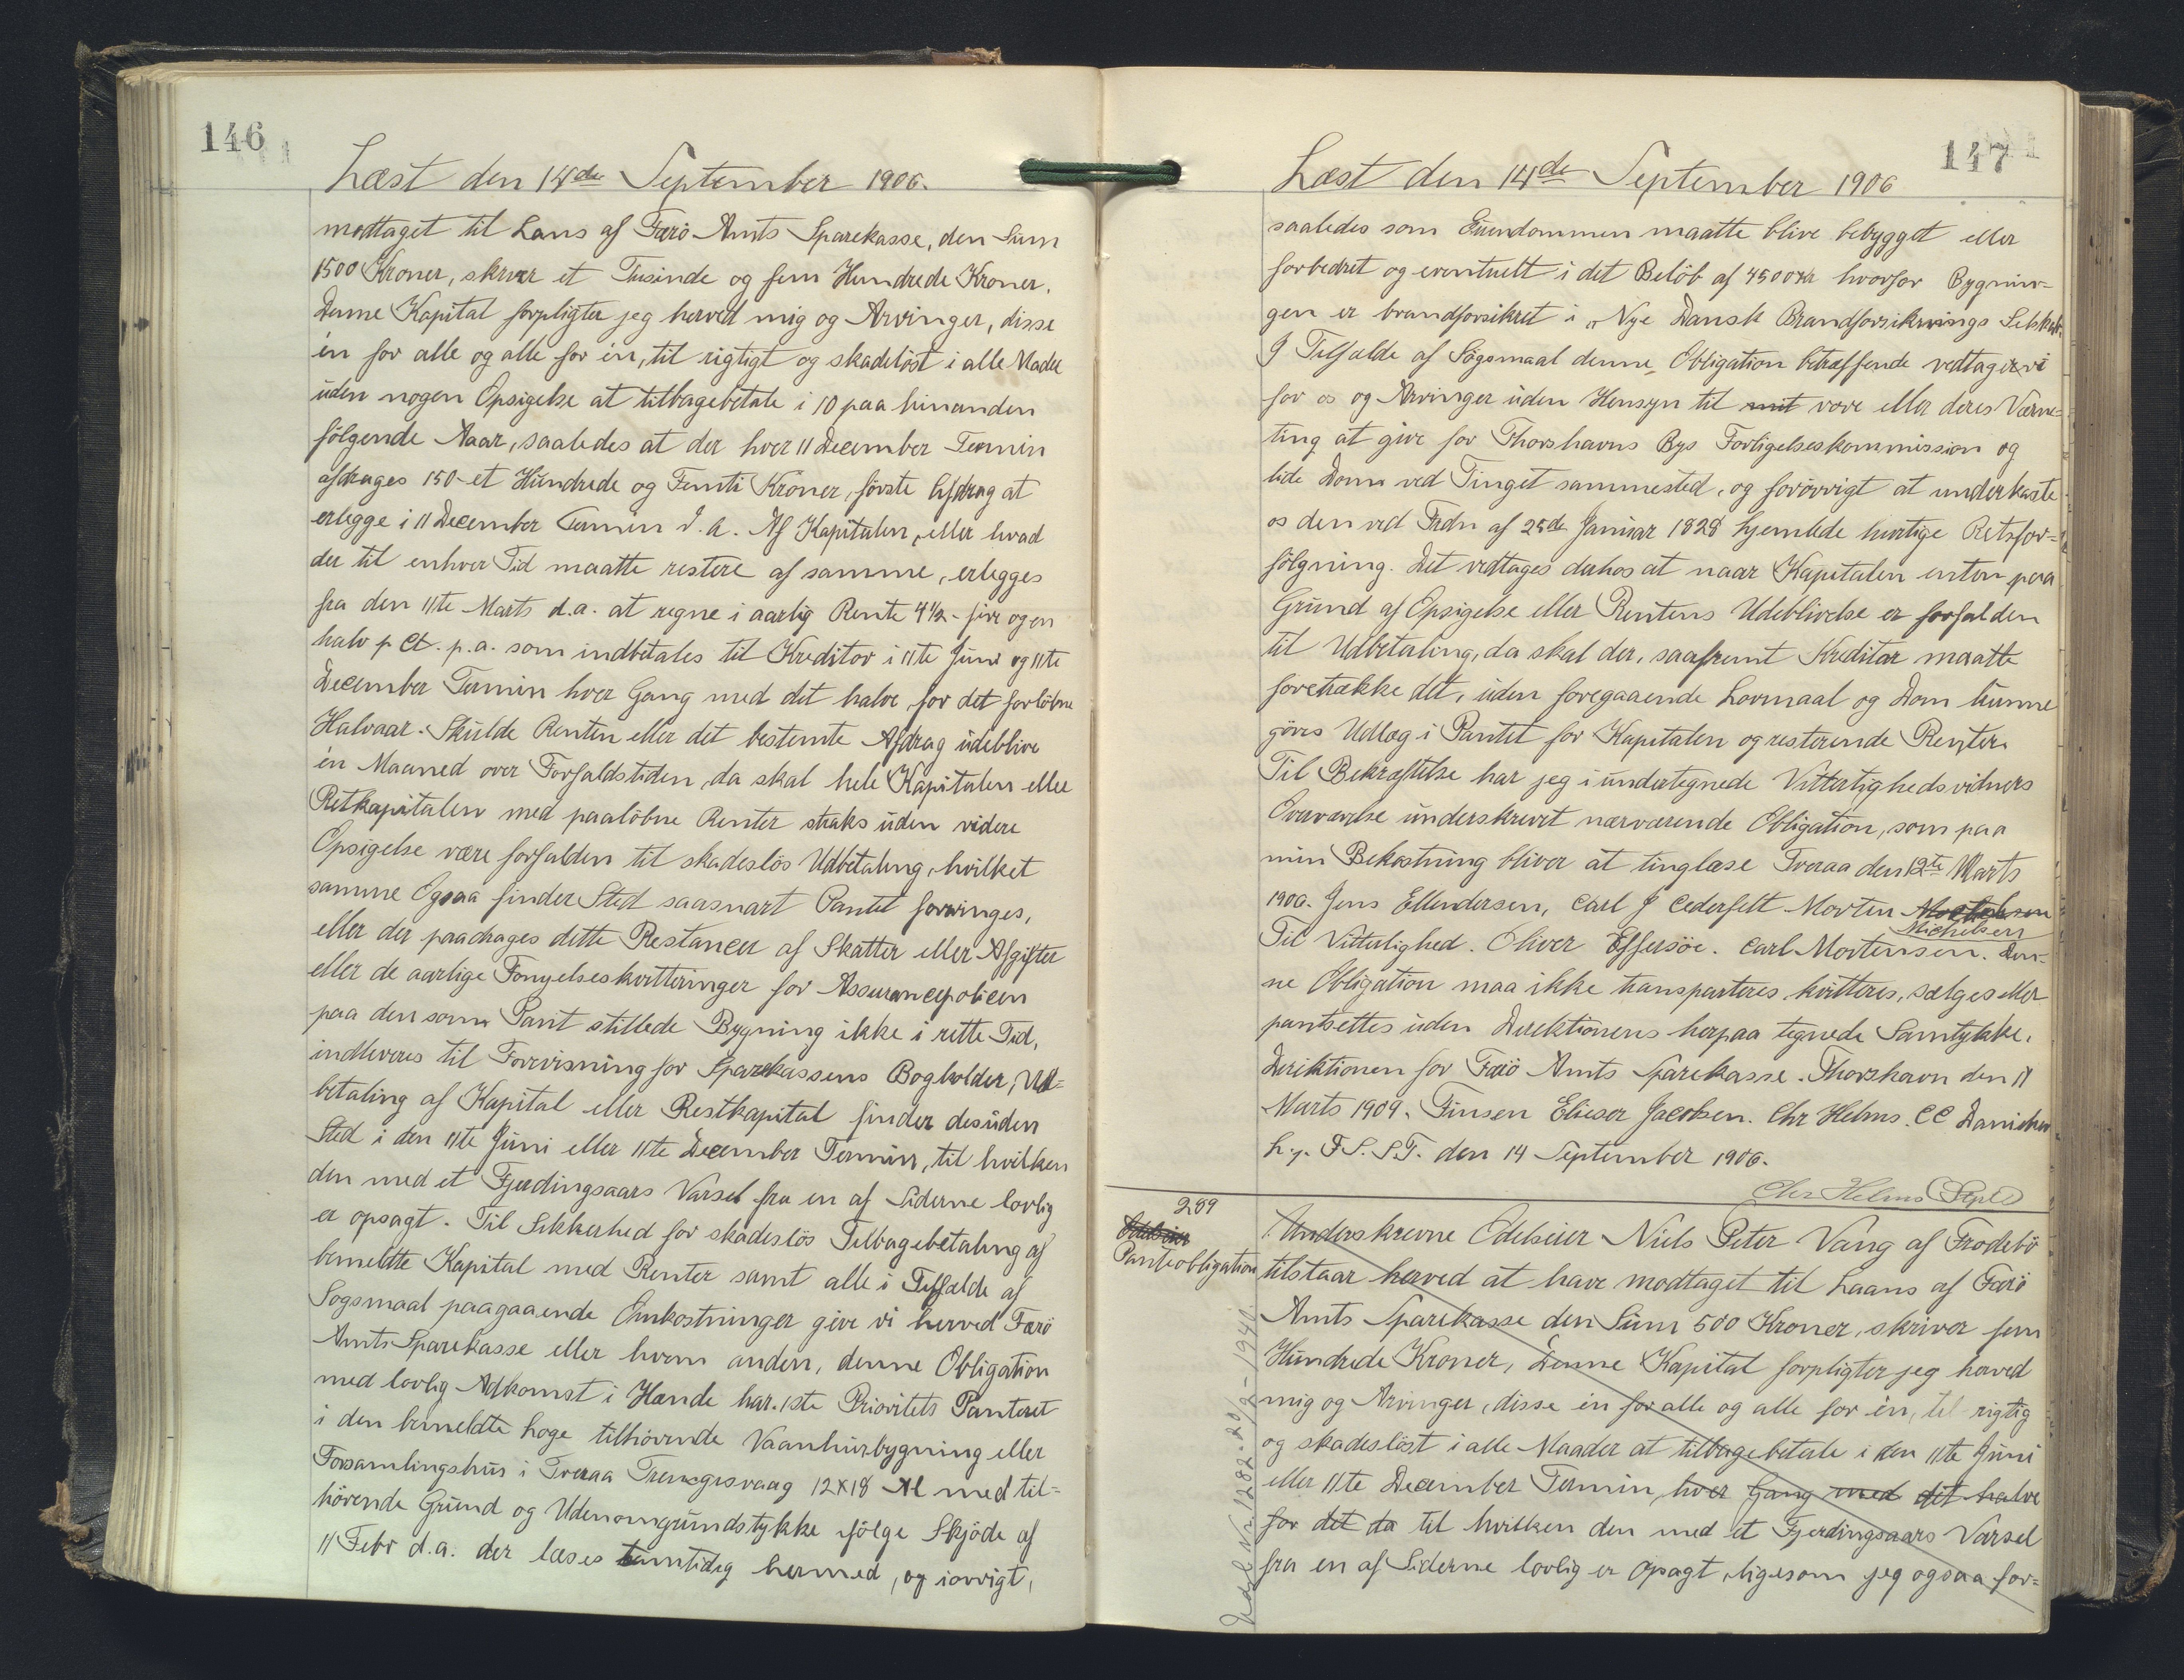 146
Læst den 14de September 1906.
modtaget til Lans af Færö Amts Sparekasse, den Sum
1500 Kroner, skriver et Tusinde og fem Hundrede Kroner,
Denne Kapital forpligter jeg herved mig og Arvinger, disse
én for alle og alle for én, til rigtigt og skadelöst i alle Mader
uden nogen Opsigelse at tilbagebetale i 10 paa hinanden
fölgende Aar, saaledes at der hver 11 December Termin
afdrages 150 - et Hundrede og Femti Kroner, förste Afdrag at
erlegge i 11 December Termin d.a. Af Kapitalen, eller hvad
der til enhver Tid maatte restere af samme, erlegges
fra den 11te Marts d.a. at regne i aarlig Rente 4 1/2 - fire og en
halv p Ct. p.a. som indbetales til Kreditor i 11te Juni og 11te
December Termin hver Gang med det halve for det forlöbne
Halvaar. Skulde Renten eller det bestemte Afdrag udeblive
én Maaned over Forfaldstiden, da skal hele Kapitalen eller
Retkapitalen med paalöbne Renter straks uden videre
Opsigelse være forfalden til skadeslös Udbetaling, hvilket
samme Ogsaa finder Sted saasnart Pantet forringes,
eller der paadrages dette Restancer af Skatter eller Afgifter
eller de aarlige Fonyelseskvitteringer for Assurancepolicen
paa den som Pant stillede Bygning ikke i rette Tid,
indleveres til Forevisning for Sparekassens Bogholder, Ud-
betaling af Kapital eller Restkapital finder desuden
Sted i den 11te Juni eller 11te December Termin, til hvilken
den med et Fjerdingsaars Varsel fra en af Siderne lovlig
er opsagt. Til Sikkerhed for skadeslös Tilbagebetaling af
bemeldte Kapital med Renter samt alle i Tilfælde af
Sogsmaal paagaaende Omkostninger give vi herved Færö
Amts Sparekasse eller hvem anden, denne Obligation
med lovlig Adkomst i Hænde har. 1ste Prioritets Panteret
i den bemeldte hoge tilhörende Vaanhusbygning eller
Forsamlingshus i Tveraa Trangisvaag 12x18 Al med til-
hörende Grund og Udenomgrundstykke fölge Skjöde af
11 Febr d.a. der læses samtidig hermed, og iövrigt,
147
Læst den 14de September 1906
saaledes som Eiendommen maatte blive bebygget eller
forbedret og eventuelt i det Belöb af 4500 Kr hvorfor Bygnin-
gen er brandforsikret i "Nye Dansk Brandforsikrings Selskab.
I Tilfælde af Sögsmaal denne Obligation betræffende vedtager vi
for os og Arvinger uden Hensyn til mit vore eller deres Værne-
ting at give for Thorshavns Bys Forligelseskommission og
lide Dom ved Tinget sammested, og forövrigt at underkaste
os den ved Frdn af 25de Januar 1828 hjemlede hurtige Retsfor-
fölgning. Det vedtages derhos at naar Kapitalen enten paa
Grund af Opsigelse eller Rentens Udeblivelse er forfalden
til Udbetaling, da skal der, saafremt Kreditor maatte
foretrække det, uden foregaaende Lovmaal og Dom kunne
göres Udlæg i Pantet for Kapitalen og resterende Renter.
Til Bekræftelse har jeg i undertegnede Vitterlighedsvidners
Overværelse underskrevet nærværende Obligation, som paa
min Bekostning bliver at tinglæse Tveraa den 12te Marts
1906. Jens Ellendersen, Carl J Cederfelt Morten
Michelsen
Til Vitterlighed. Oliver Effersöe. Carl Mortensen. Den-
ne Obligation maa ikke transporteres, kvitteres, sælges eller
pantsettes uden Direktionens herpaa tegnede Samtykke.
Direktionen for Færö Amts Sparekasse. Thorshavn den 11
Marts 1909. Finsen Elieser Jacobsen. Chr Helms. CC Danielsen
h.y. F S. S.T. den 14 September 1906.
Chr Helms Sept
289
Panteobligation
Underskrevne Odelseier Niels Peter Vang af Frodebö
tilstaar herved at have modtaget til Laans af Færö
Amts Sparekasse den Sum 500 Kroner, skriver fem
Hundrede Kroner, Denne Kapital forpligter jeg herved
mig og Arvinger, disse én for alle og alle for én, til rigtig
og skadeslöst i alle Maader at tilbagebetale i den 11te Juni
eller 11te December Termin, hver Gang med det halve
for det da til hvilken den med et Fjerdingsaars Varsel
fra en af Siderne lovlig er opsagt, ligesom jeg ogsaa for-